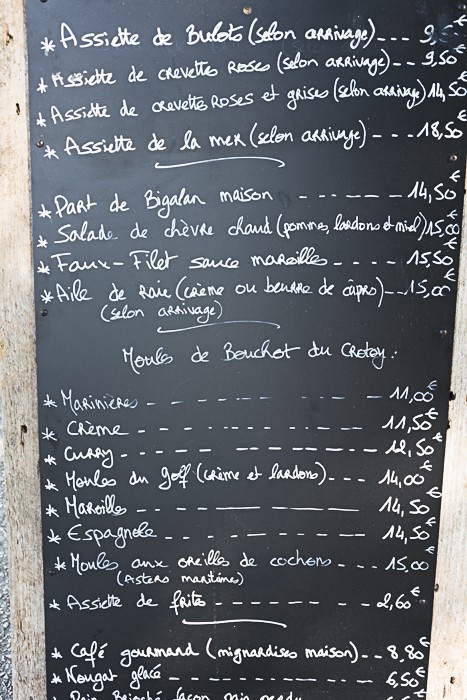 * Assiette de Bulots (selon arrivage)--- 9, €
* Assiette de crevettes Roses (selon arrivage)-- 9,50€
* Assiette de crevettes Roses et grises (selon arrivage) 14,50€
* Assiette de la mer (selon arrivage) - - - 18,50€
* Part de Bigalan maison - - - - - - 14,50€
* Salade de chèvre chaud (pomme, lardons et miel) 15,00€
* Faux-Filet sauce maroilles - - - - 15,50€
* Aile de Raie (crème ou beurre de câpres)--- 15,00€
(selon arrivage)
Moules de Bouchot du Crotoy :
* Marinières - - - - - - - - - 11,00€
* Crème - - - - - - - - - 11,50€
* Curry - - - - - - - - - 12,50€
* Moules du golf (crème et lardons)- - - 14,00€
* Maroille - - - - - - - 14,50€
* Espagnole - - - - - - - 14,50€
* Moules aux oreilles de cochons - - - 15,00€
(Asters maritimes)
* Assiette de frites - - - - - - - - 2,60€
* Café gourmand (mignardises maison)-- 8,80€
* Nougat glacé - - - - - - - - 6,50€
façon pain perdu